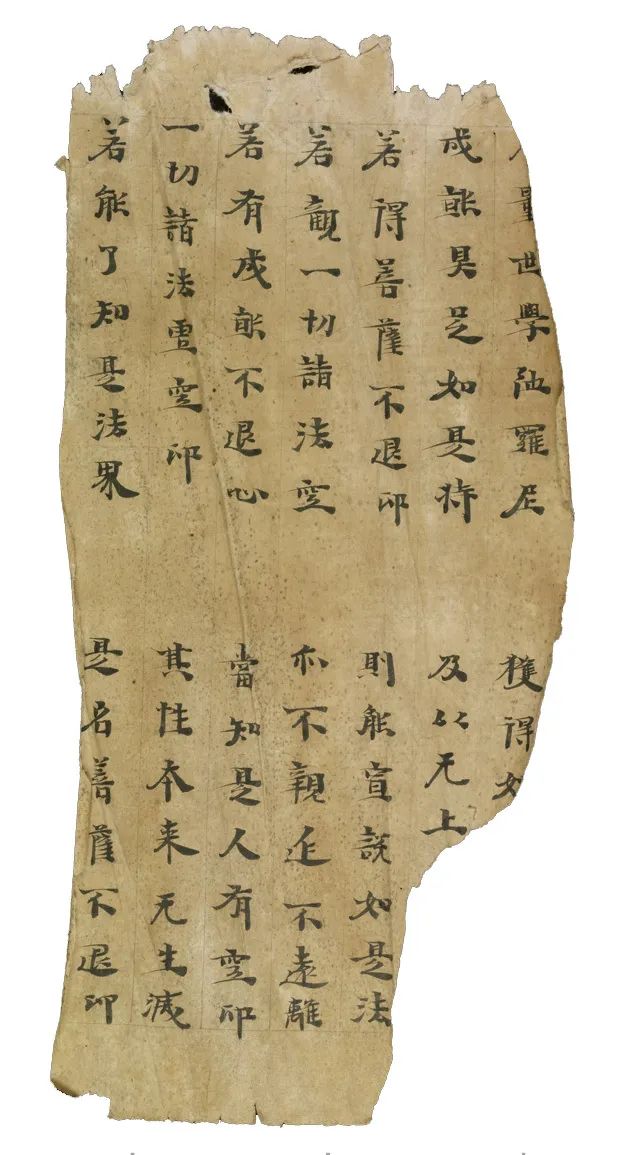 量世學陁羅尼 獲得如
成就具足如是持 及以无上
若得菩薩不退印 則能宣說如是法
若觀一切諸法空 亦不親近不遠離
若有成就不退心 當知是人有空印
一切諸法虛空印 其性本来无生滅
若能了知是法界 是名菩薩不退印